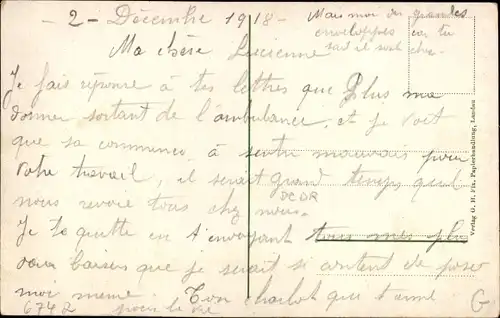 - 2 - Décembre 1918 -
Mais moi des grandes
enveloppes car tu
sait il sont cher
Ma chère Lucienne
Je fais réponse à tes lettres que Plus ma
donner sortant de l'ambulance, et je voit
que sa commence à sentir mauvais pour
Votre travail, il serait grand temps quel
nous revoie tous chez nous.
DCDR
Je te quitte en t'envoyant tous mes plus
doux baisers que je serait si content de poser
moi meme. Ton charlot qui t'aime.
6742 pour la vie
G
Verlag G. H. Fix, Papierhandlung, Landau